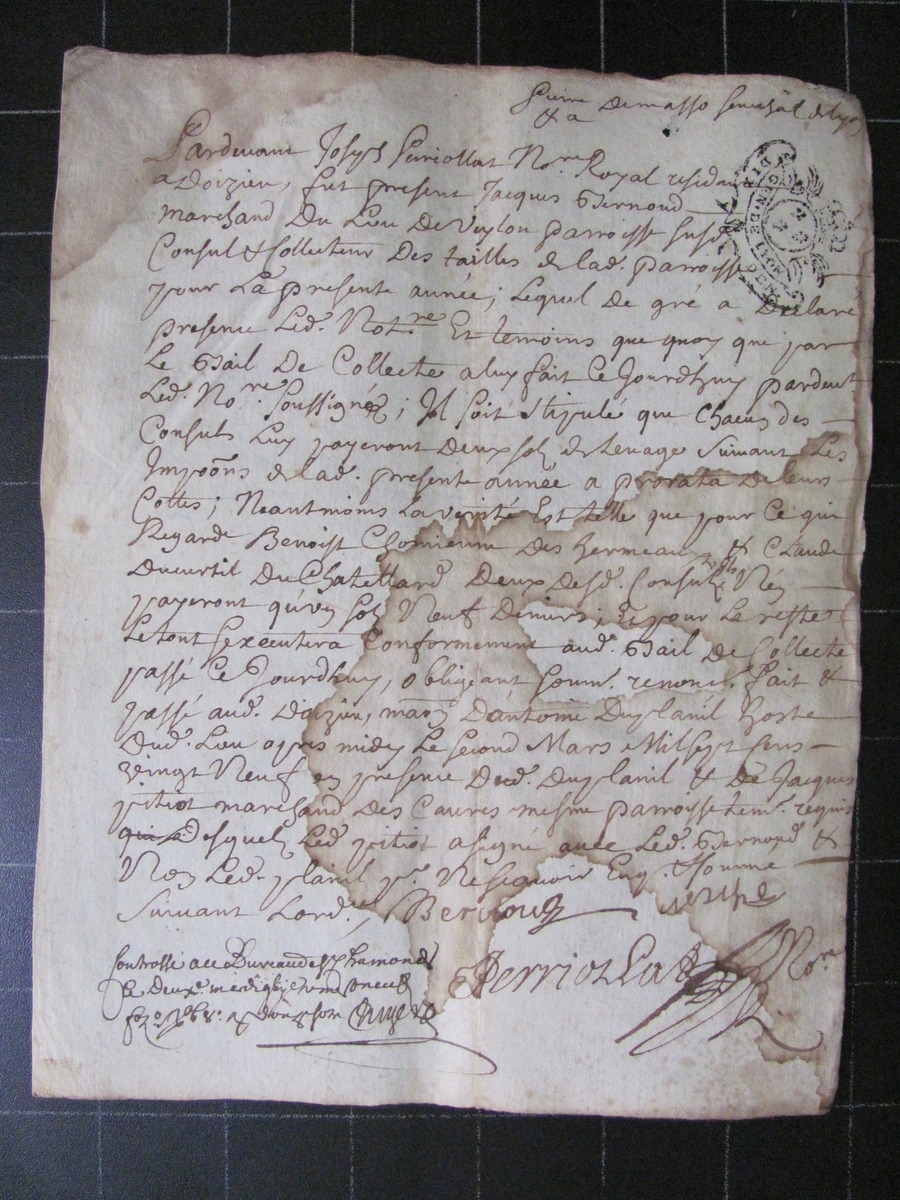 Pierre Demasso Senechal de Lyon
& a
Pardevant Joseph Perriollat Nore Royal residant
a Doizieu, fut present Jacques Bernoud
marchand Du Lieu De parroisse susd.
Consul & Collecteur Des tailles de lad. parroisse
pour La presente année; Lequel De gré a Declaré
presence Led. Notre Et temoins que quoy que par
Le Bail De Collecte a luy fait Ce Jourdhuy pardevt
Led. Nore soussigné; Il soit stipulé que Chacun des
Consuls Luy payeront Deux sols de Levage suivant Les
Impoõns de lad. presente année a prorata De leurs
Cottes; Neantmoins La verité Est telle que pour Ce qui
Regarde Benoist Chomienne Des hermeaux & Claude
Ducurtil Du Chatellard Deux Desd. Consuls Nen
payeront qu'vn sol Neuf Deniers; Et pour Le reste
Le tout s'executera Conformement aud. Bail De Collecte
passé Ce Jourdhuy, obligeant soum. renonc. fait &
passé aud. Doizieu, maon D'antoine Duplanil hoste
Dud. Lieu apres midy Le second Mars Mil sept Cens
vingt Neuf en presence Dud. Duplanil & De Jacques
pitiot marchand Des Caures mesme parroisse tem. requis
Desquels Led. pitiot a signé avec Led. Bernoud &
Non Led. planil pr. Ne scavoir Enq. & somme
suivant Lord. Bernoud
Perriollat Nore
Controllé au Bureau de St chamond
Le deuxe. mars